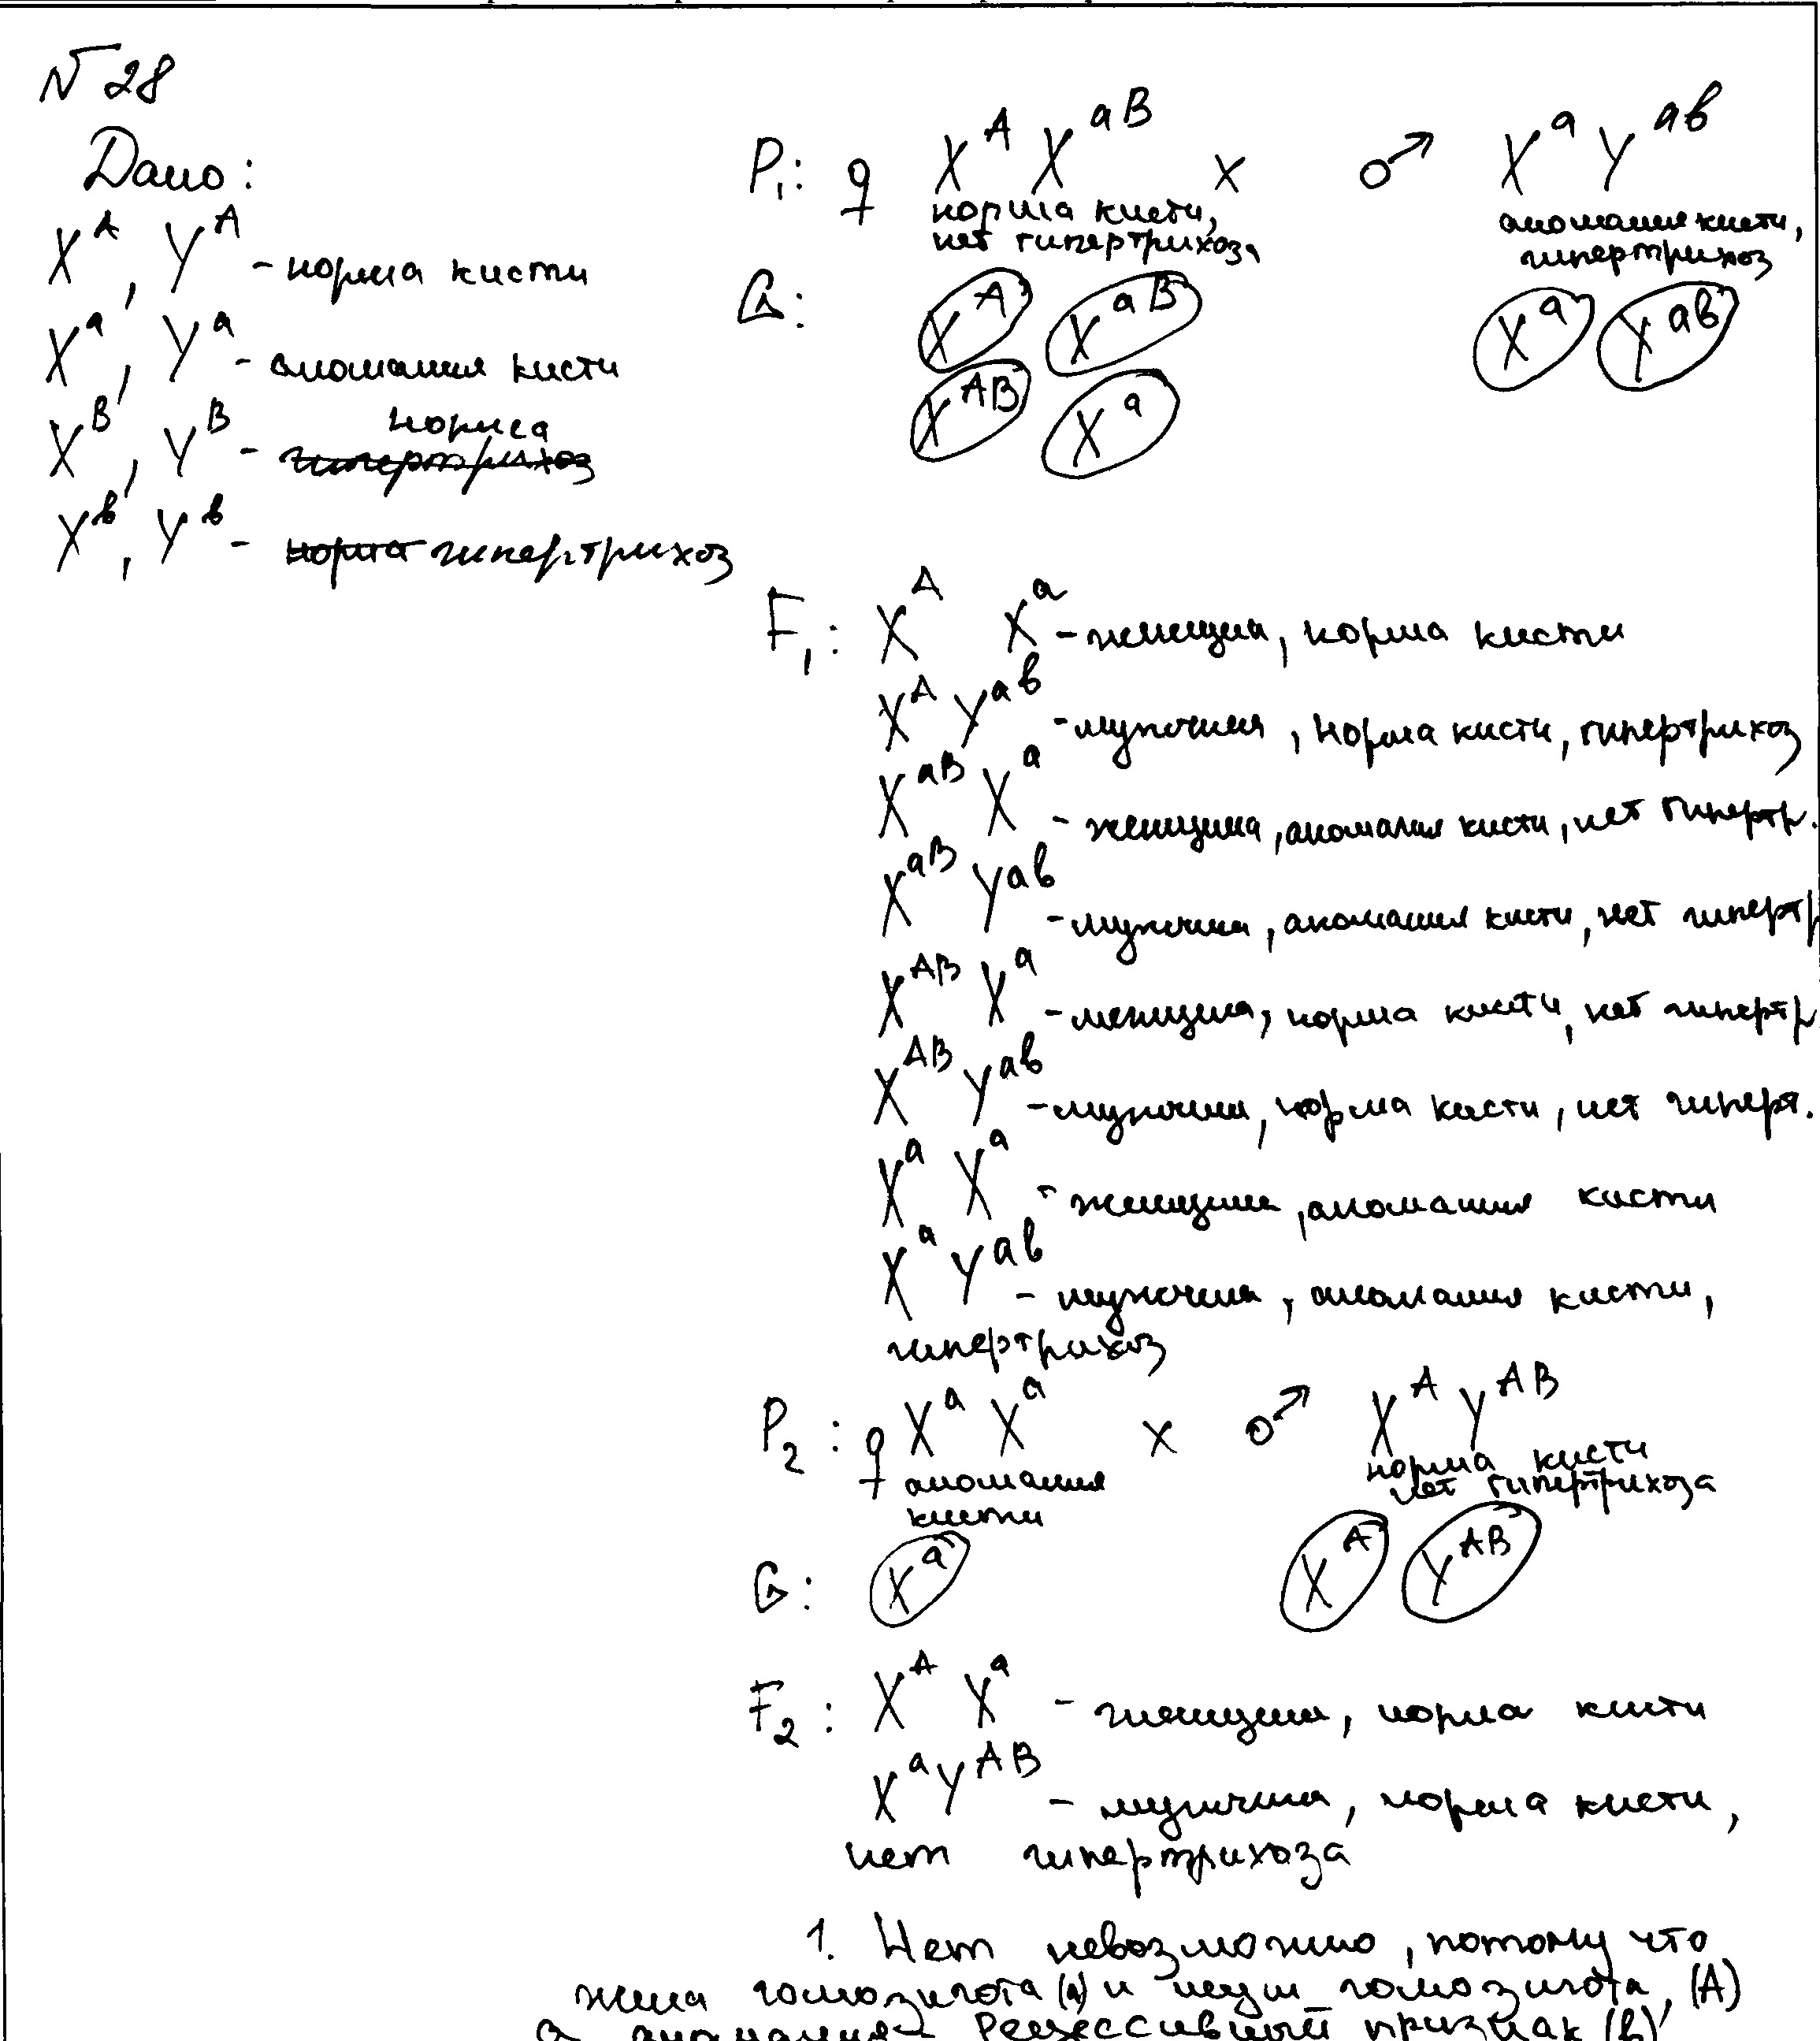 № 28
Дано:
X^A, Y^A - норма кисти
X^a, Y^a - аномалия кисти
X^B, Y^B - гипертрихоз норма
X^b, Y^b - норма гипертрихоз
P₁: ♀ X^A X^aB × ♂ X^a Y^ab
норма кисти, нет гипертрихоза
аномалия кисти, гипертрихоз
G: X^A X^aB X^a Y^ab
X^AB X^a
F₁: X^A X^a - женщина, норма кисти
X^A Y^ab - мужчина, норма кисти, гипертрихоз
X^aB X^a - женщина, аномалия кисти, нет гипертр.
X^aB Y^ab - мужчина, аномалия кисти, нет гипертр
X^AB X^a - женщина, норма кисти, нет гипертр
X^AB Y^ab - мужчина, норма кисти, нет гиперт.
X^a X^a - женщина, аномалия кисти
X^a Y^ab - мужчина, аномалия кисти,
гипертрихоз
P₂: ♀ X^a X^a × ♂ X^A Y^AB
аномалия кисти
норма кисти нет гипертрихоза
G: X^a X^A Y^AB
F₂: X^A X^a - женщина, норма кисти
X^a Y^AB - мужчина, норма кисти,
нет гипертрихоза
1. Нет невозможно, потому что
жена гомозигота (a) и муж гомозигота (A)
а аномалия - рецессивный признак (b)